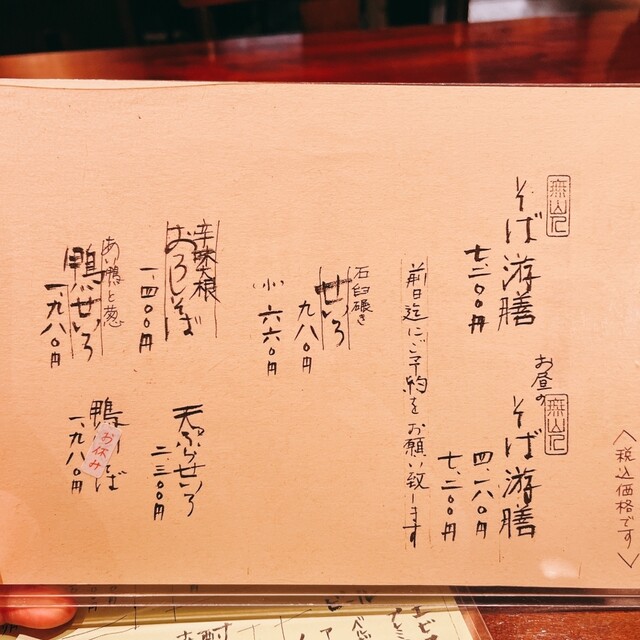 〈税込価格です〉
無山人
そば游膳
七、二〇〇円
お昼の
無山人
そば游膳
四、一八〇円
七、二〇〇円
前日迄にご予約をお願い致します
石臼碾き
せいろ
九八〇円
小 六六〇円
辛味大根
おろしそば
一、四〇〇円
天ぷらせいろ
二、三〇〇円
あい鴨と葱
鴨せいろ
一、九八〇円
鴨 ば
お休み
一、九八〇円